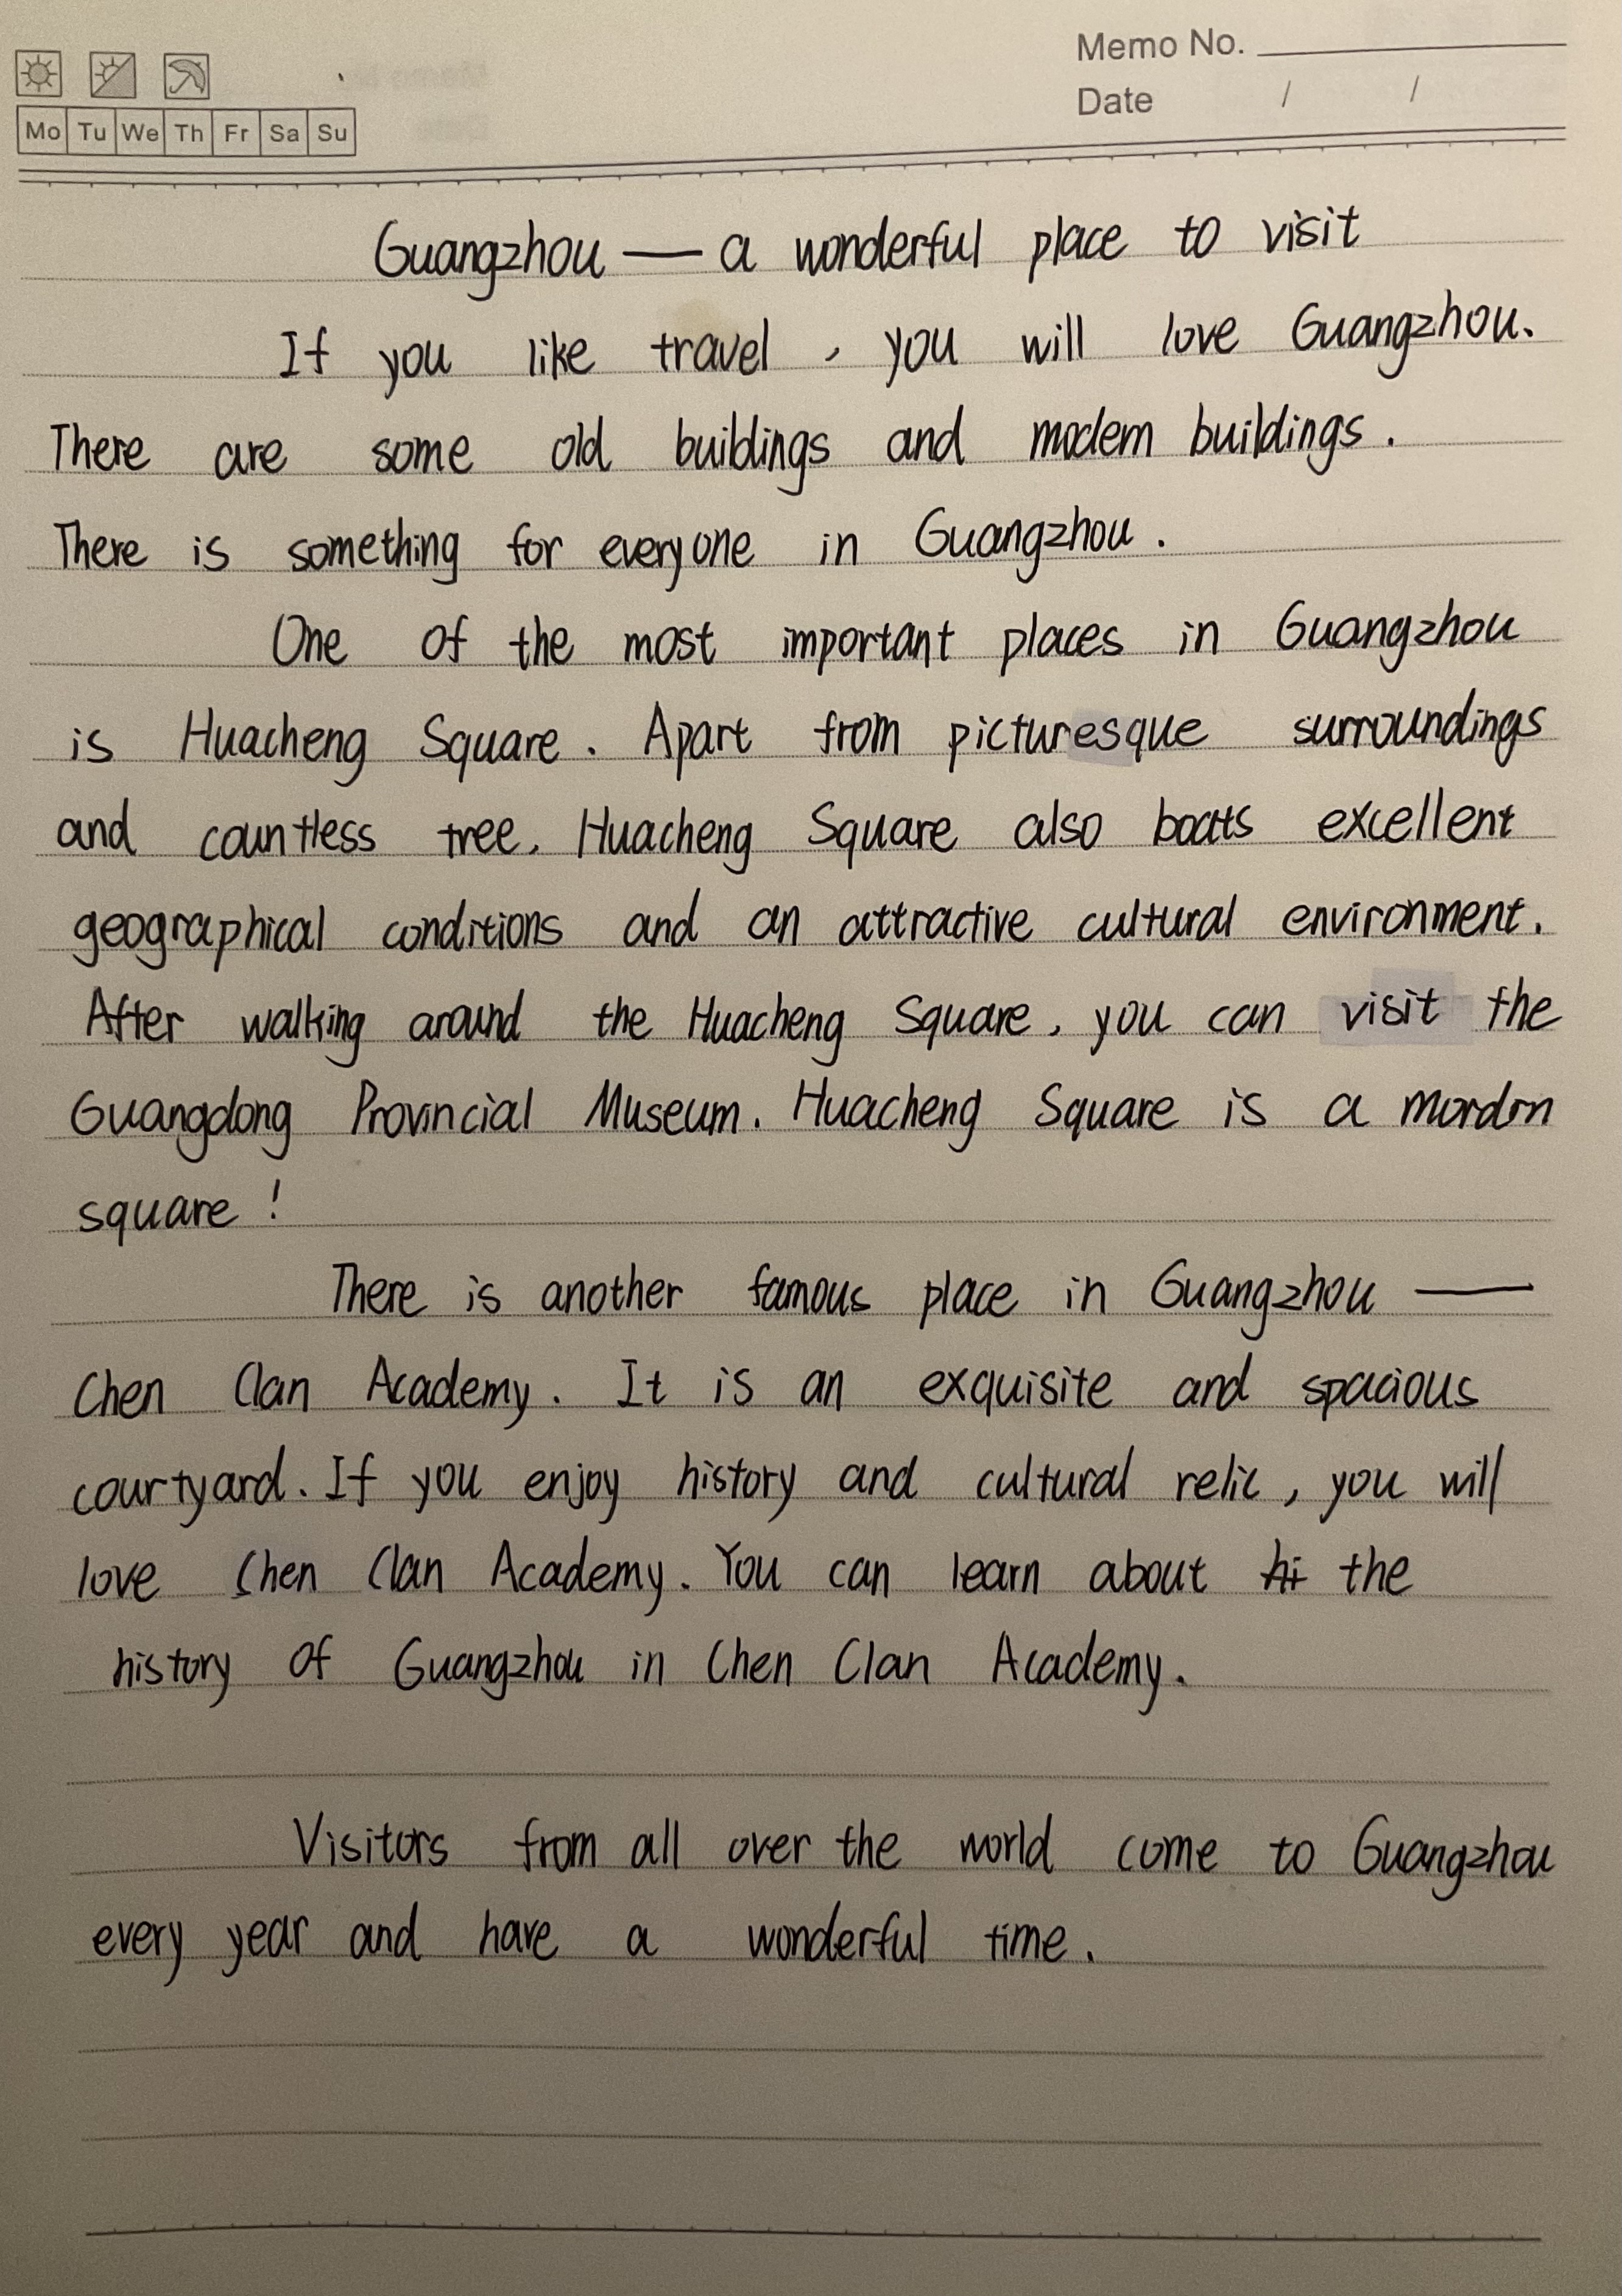 Memo No.
Date / /
Mo Tu We Th Fr Sa Su
Guangzhou — a wonderful place to visit
If you like travel, you will love Guangzhou.
There are some old buildings and modern buildings.
There is something for everyone in Guangzhou.
One of the most important places in Guangzhou
is Huacheng Square. Apart from picturesque surroundings
and countless tree, Huacheng Square also boats excellent
geographical conditions and an attractive cultural environment.
After walking around the Huacheng Square, you can visit the
Guangdong Provincial Museum. Huacheng Square is a mordrn
square!
There is another famous place in Guangzhou —
Chen Clan Academy. It is an exquisite and spacious
courtyard. If you enjoy history and cultural relic, you will
love Chen Clan Academy. You can learn about hi the
history of Guangzhou in Chen Clan Academy.
Visitors from all over the world come to Guangzhou
every year and have a wonderful time.